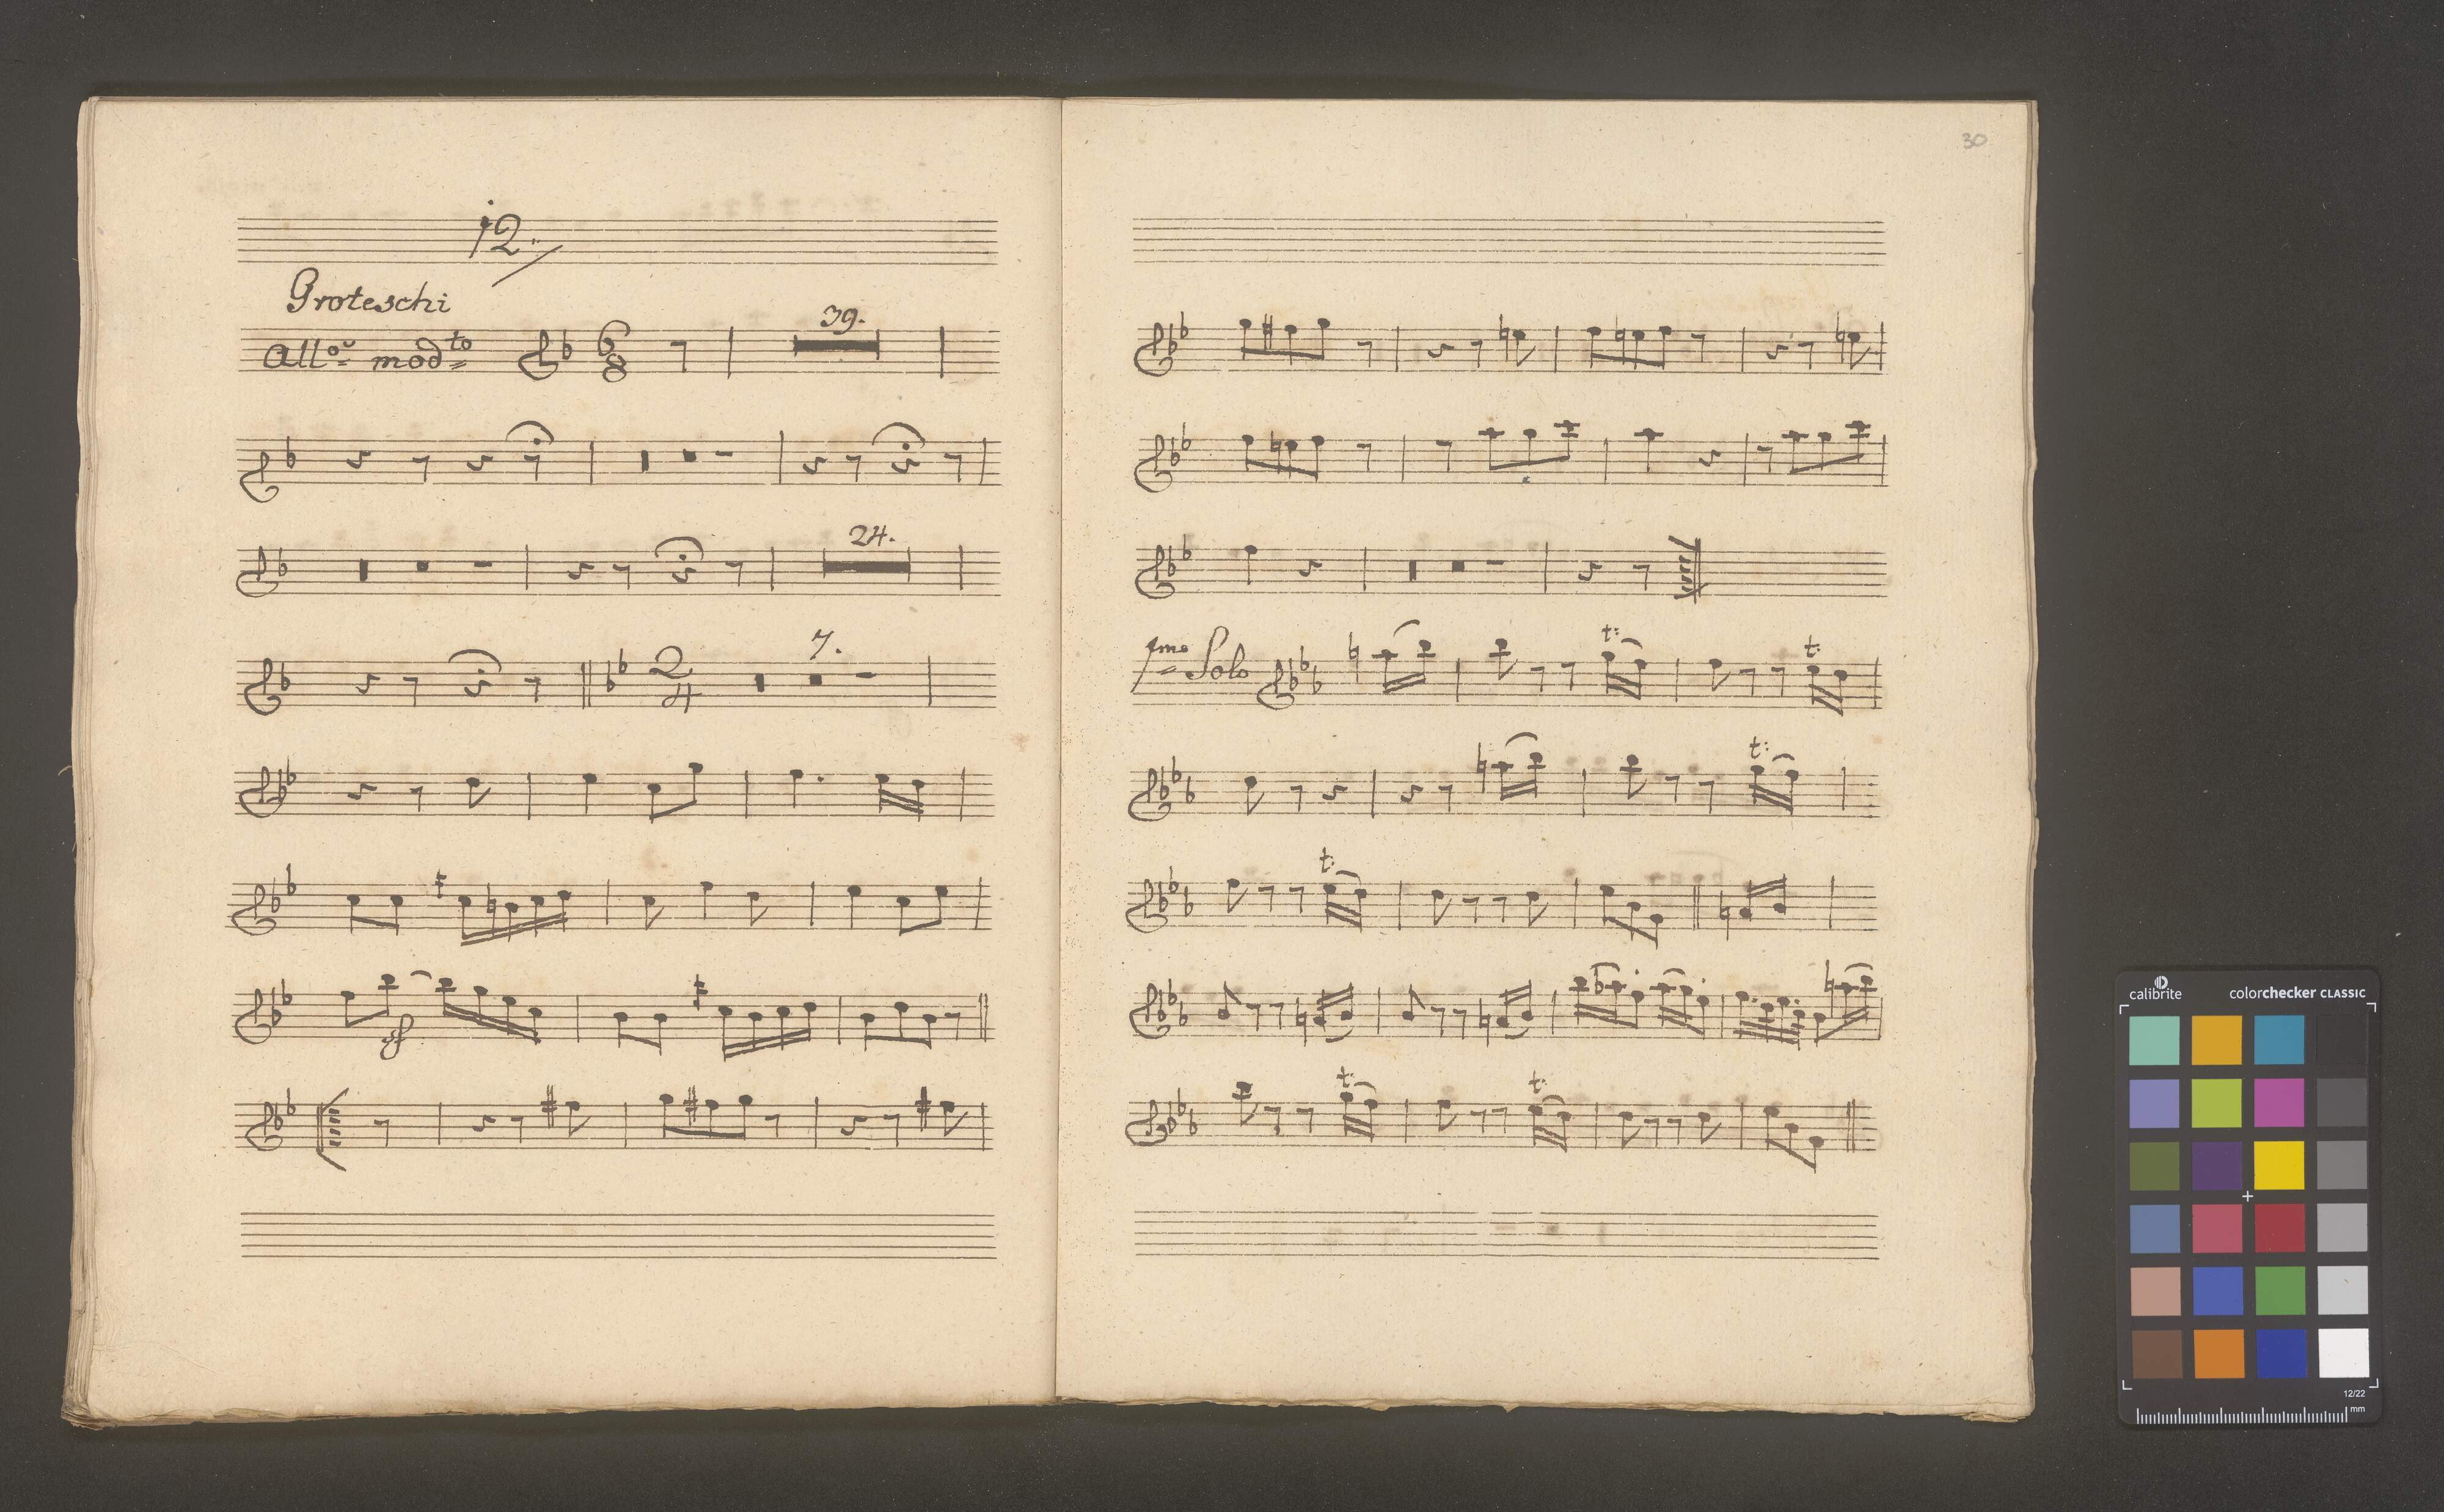 12.
Groteschi
39.
All.º mod.to 6 8
24.
7.
2 4
sf
30
1mo Solo t: t:
t:
t:
t: t:
calibrite colorchecker CLASSIC
12/22
mm